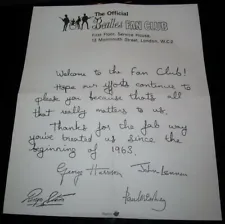 The Official
Beatles FAN CLUB
First Floor, Service House,
13 Monmouth Street, London, W.C.2
Welcome to the Fan Club!
Hope our efforts continue to
please you because that's all
that really matters to us.
Thanks for the fab way
you've treated us since the
beginning of 1963.
George Harrison
John Lennon
Ringo Starr
Paul McCartney